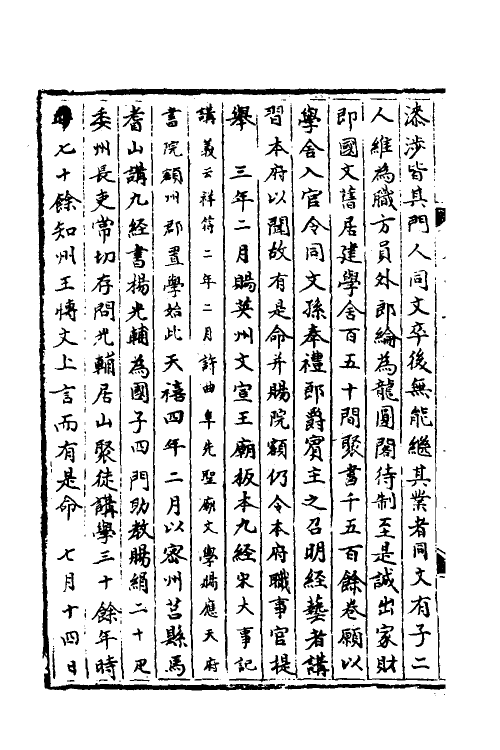 滌渉皆其門人同文卒後無能繼其業者同文有子二
人維為職方員外郎綸為龍圖閣待制至是誠出家財
即國文舊居建學舍百五十間聚書千五百餘卷願以
學舍入官令同文孫奉禮郎爵賓主之召明經藝者講
習本府以聞故有是命并賜院額仍令本府職事官提
舉　三年二月賜英州文宣王廟板本九經宋大事記
講義云祥符二年二月許曲阜先聖廟文學賜應天府
書院額州郡置學始此天禧四年二月以密州莒縣馬
耆山講九經書楊光輔為國子四門助教賜絹二十疋
委州長吏常切存問光輔居山聚徒講學三十餘年時
年七十餘知州王博文上言而有是命　七月十四日